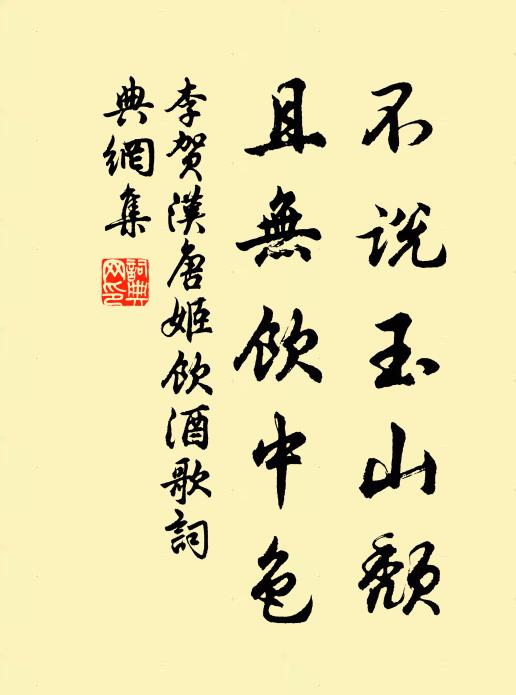 不説玉山頹
且無飲中色
李賀漢唐姬飲酒歌詞
典網集
詞典
网印